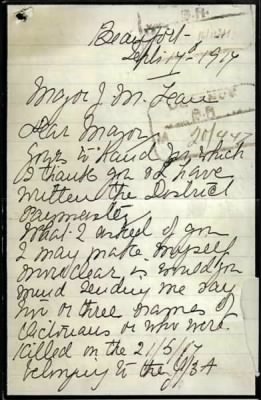 Beaufort
Sept 17 - 1917
Major J. M. Lean
Dear Major
Yours to Hand for which
I thank you & I have
written the District
Paymaster
What I asked of you
I may make myself
more clear, is would you
mind sending me say
two or three names of
Victorians or who were
Killed on the 21/5/17
belonging to the